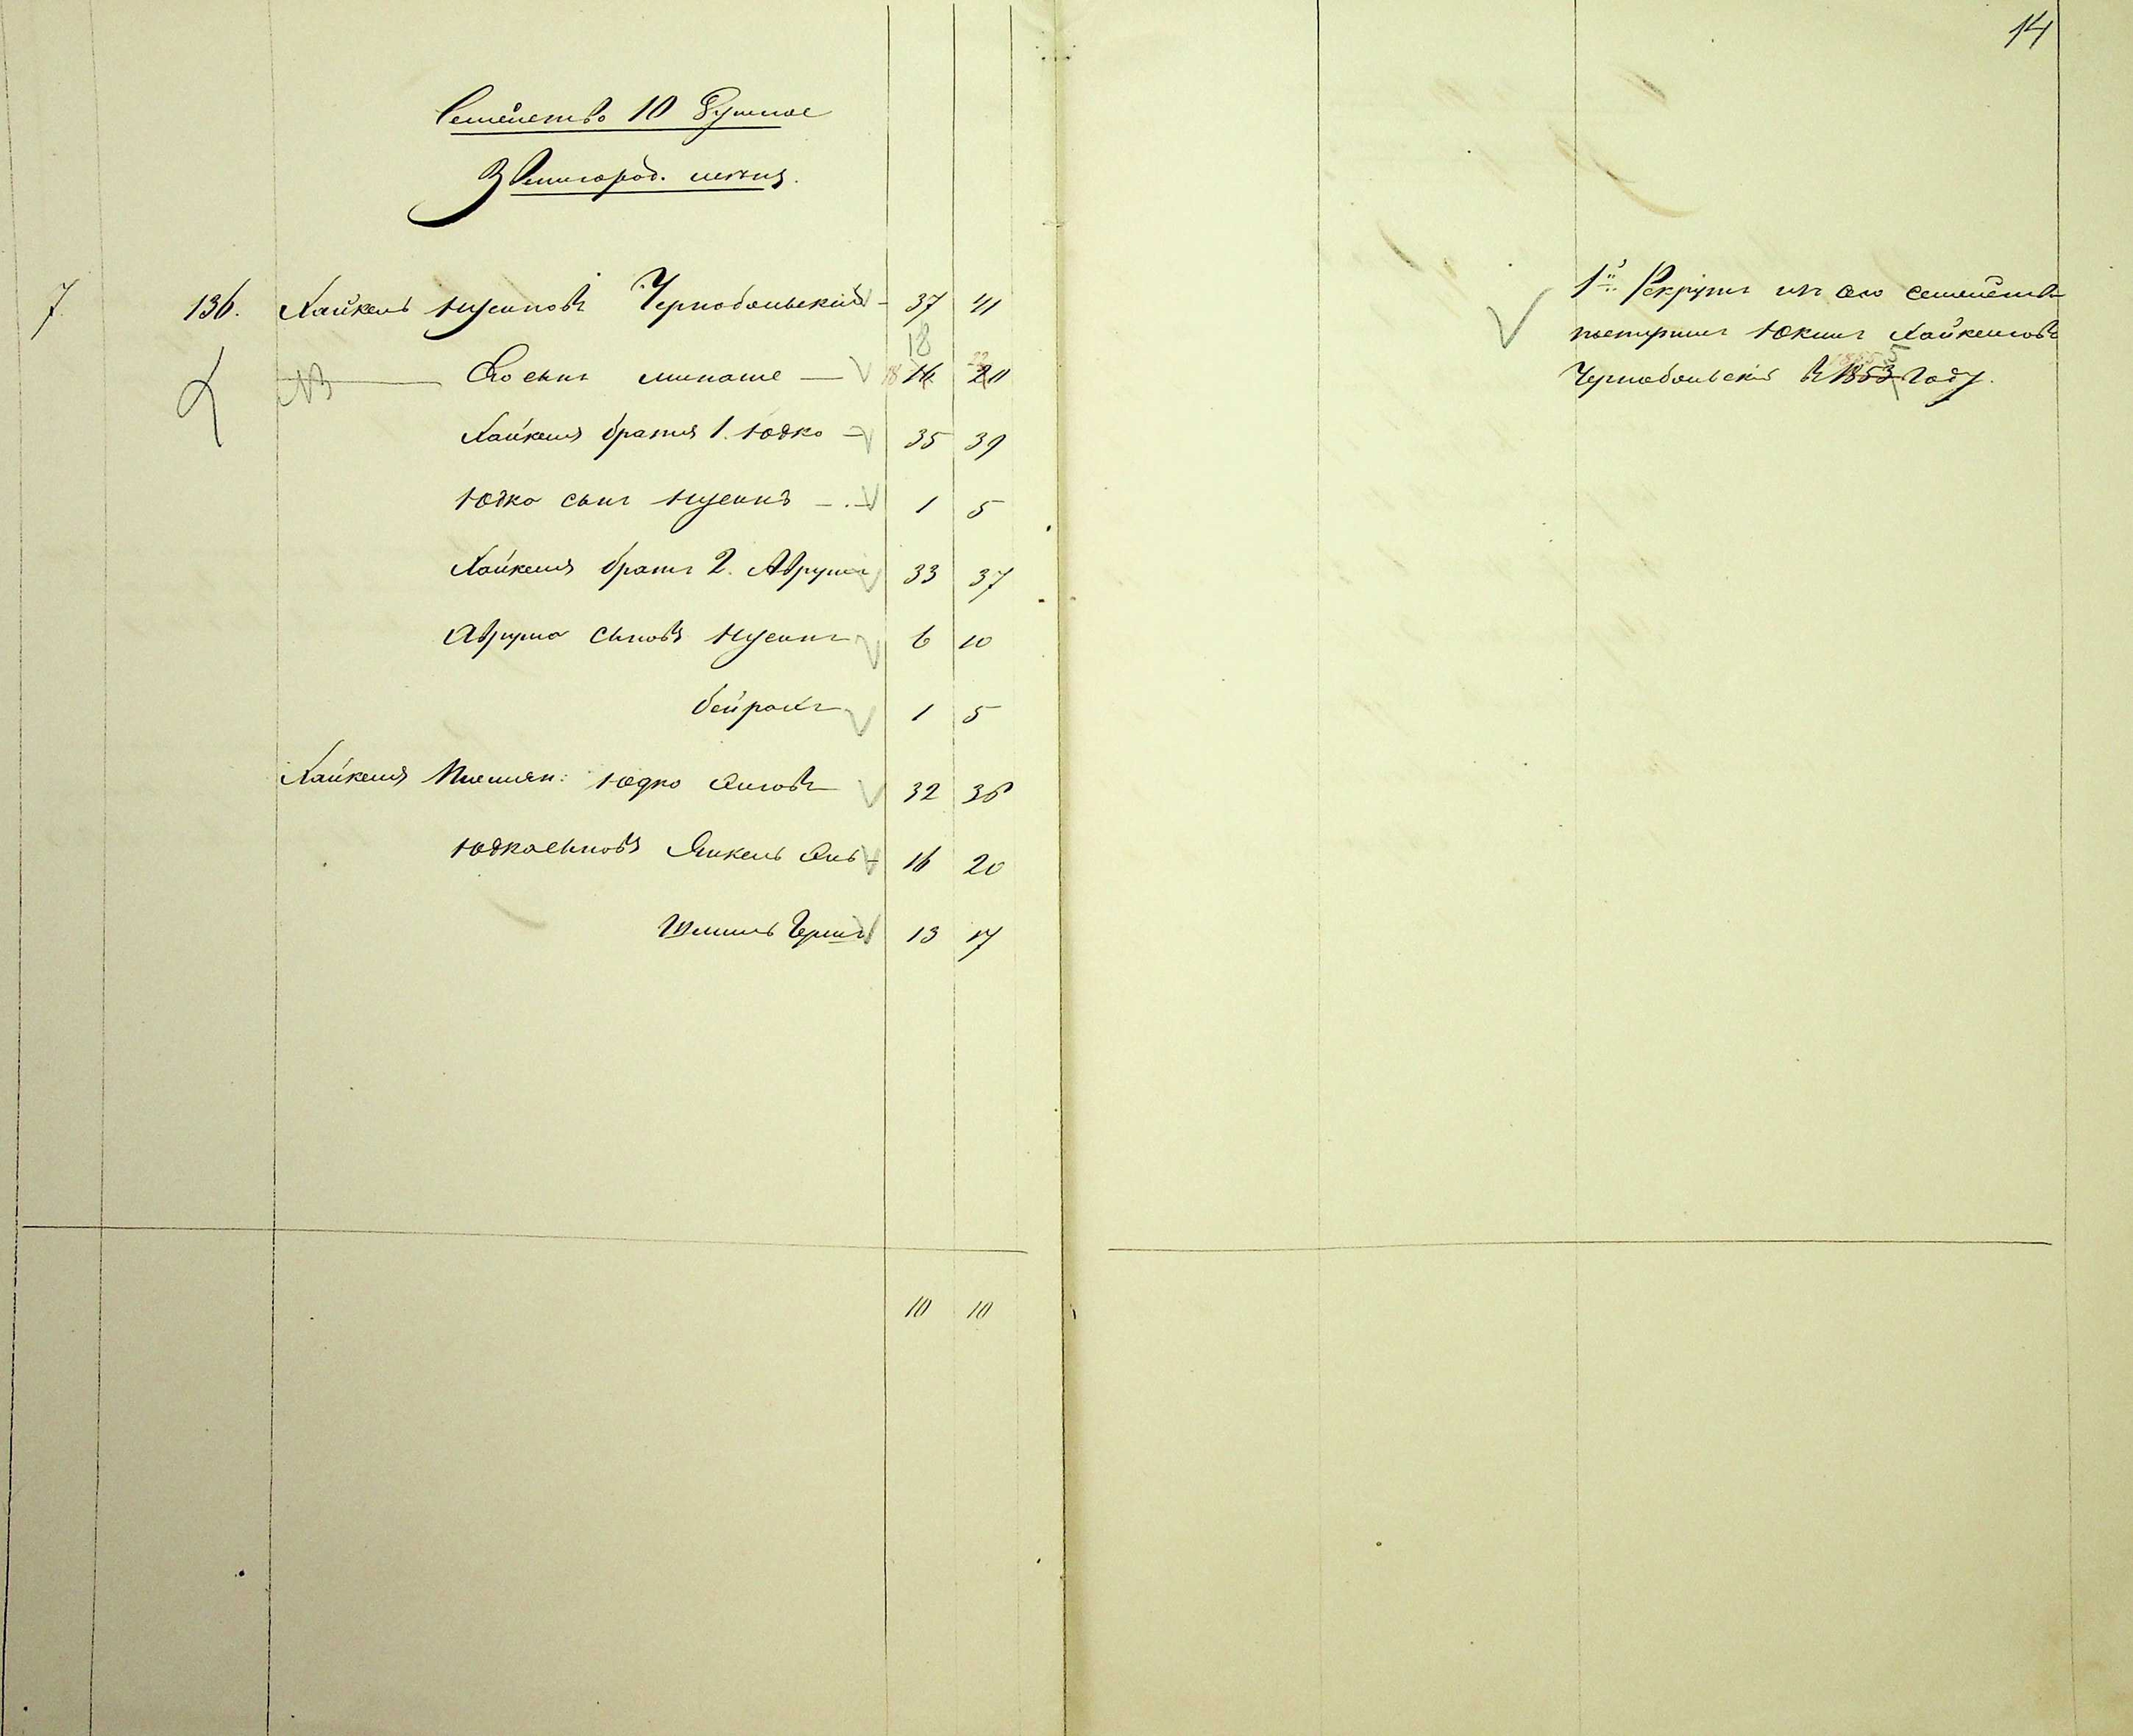 14
Семейство 10 Душное
Звенигород. мѣщ.
7 136. Хайкель Нусиновъ Чернобыльскій 37 41
18
NB Его сынъ Минаше 18 16 22 20
Хайкеля братья 1. Юдко 35 39
Юдко сынъ Нусинъ 1 5
Хайкеля братъ 2. Аврумъ 33 37
Аврума сыновья Нусинъ 6 10
Бейрахъ 1 5
Хайкеля Племян: Юдко 32 36
Юдко сыновья Янкель 16 20
Шмиль Гершъ 13 17
10 10
1й Рекрутъ изъ его семейства
поступилъ Хайкелевъ
Чернобыльскій въ 1853 5 году.